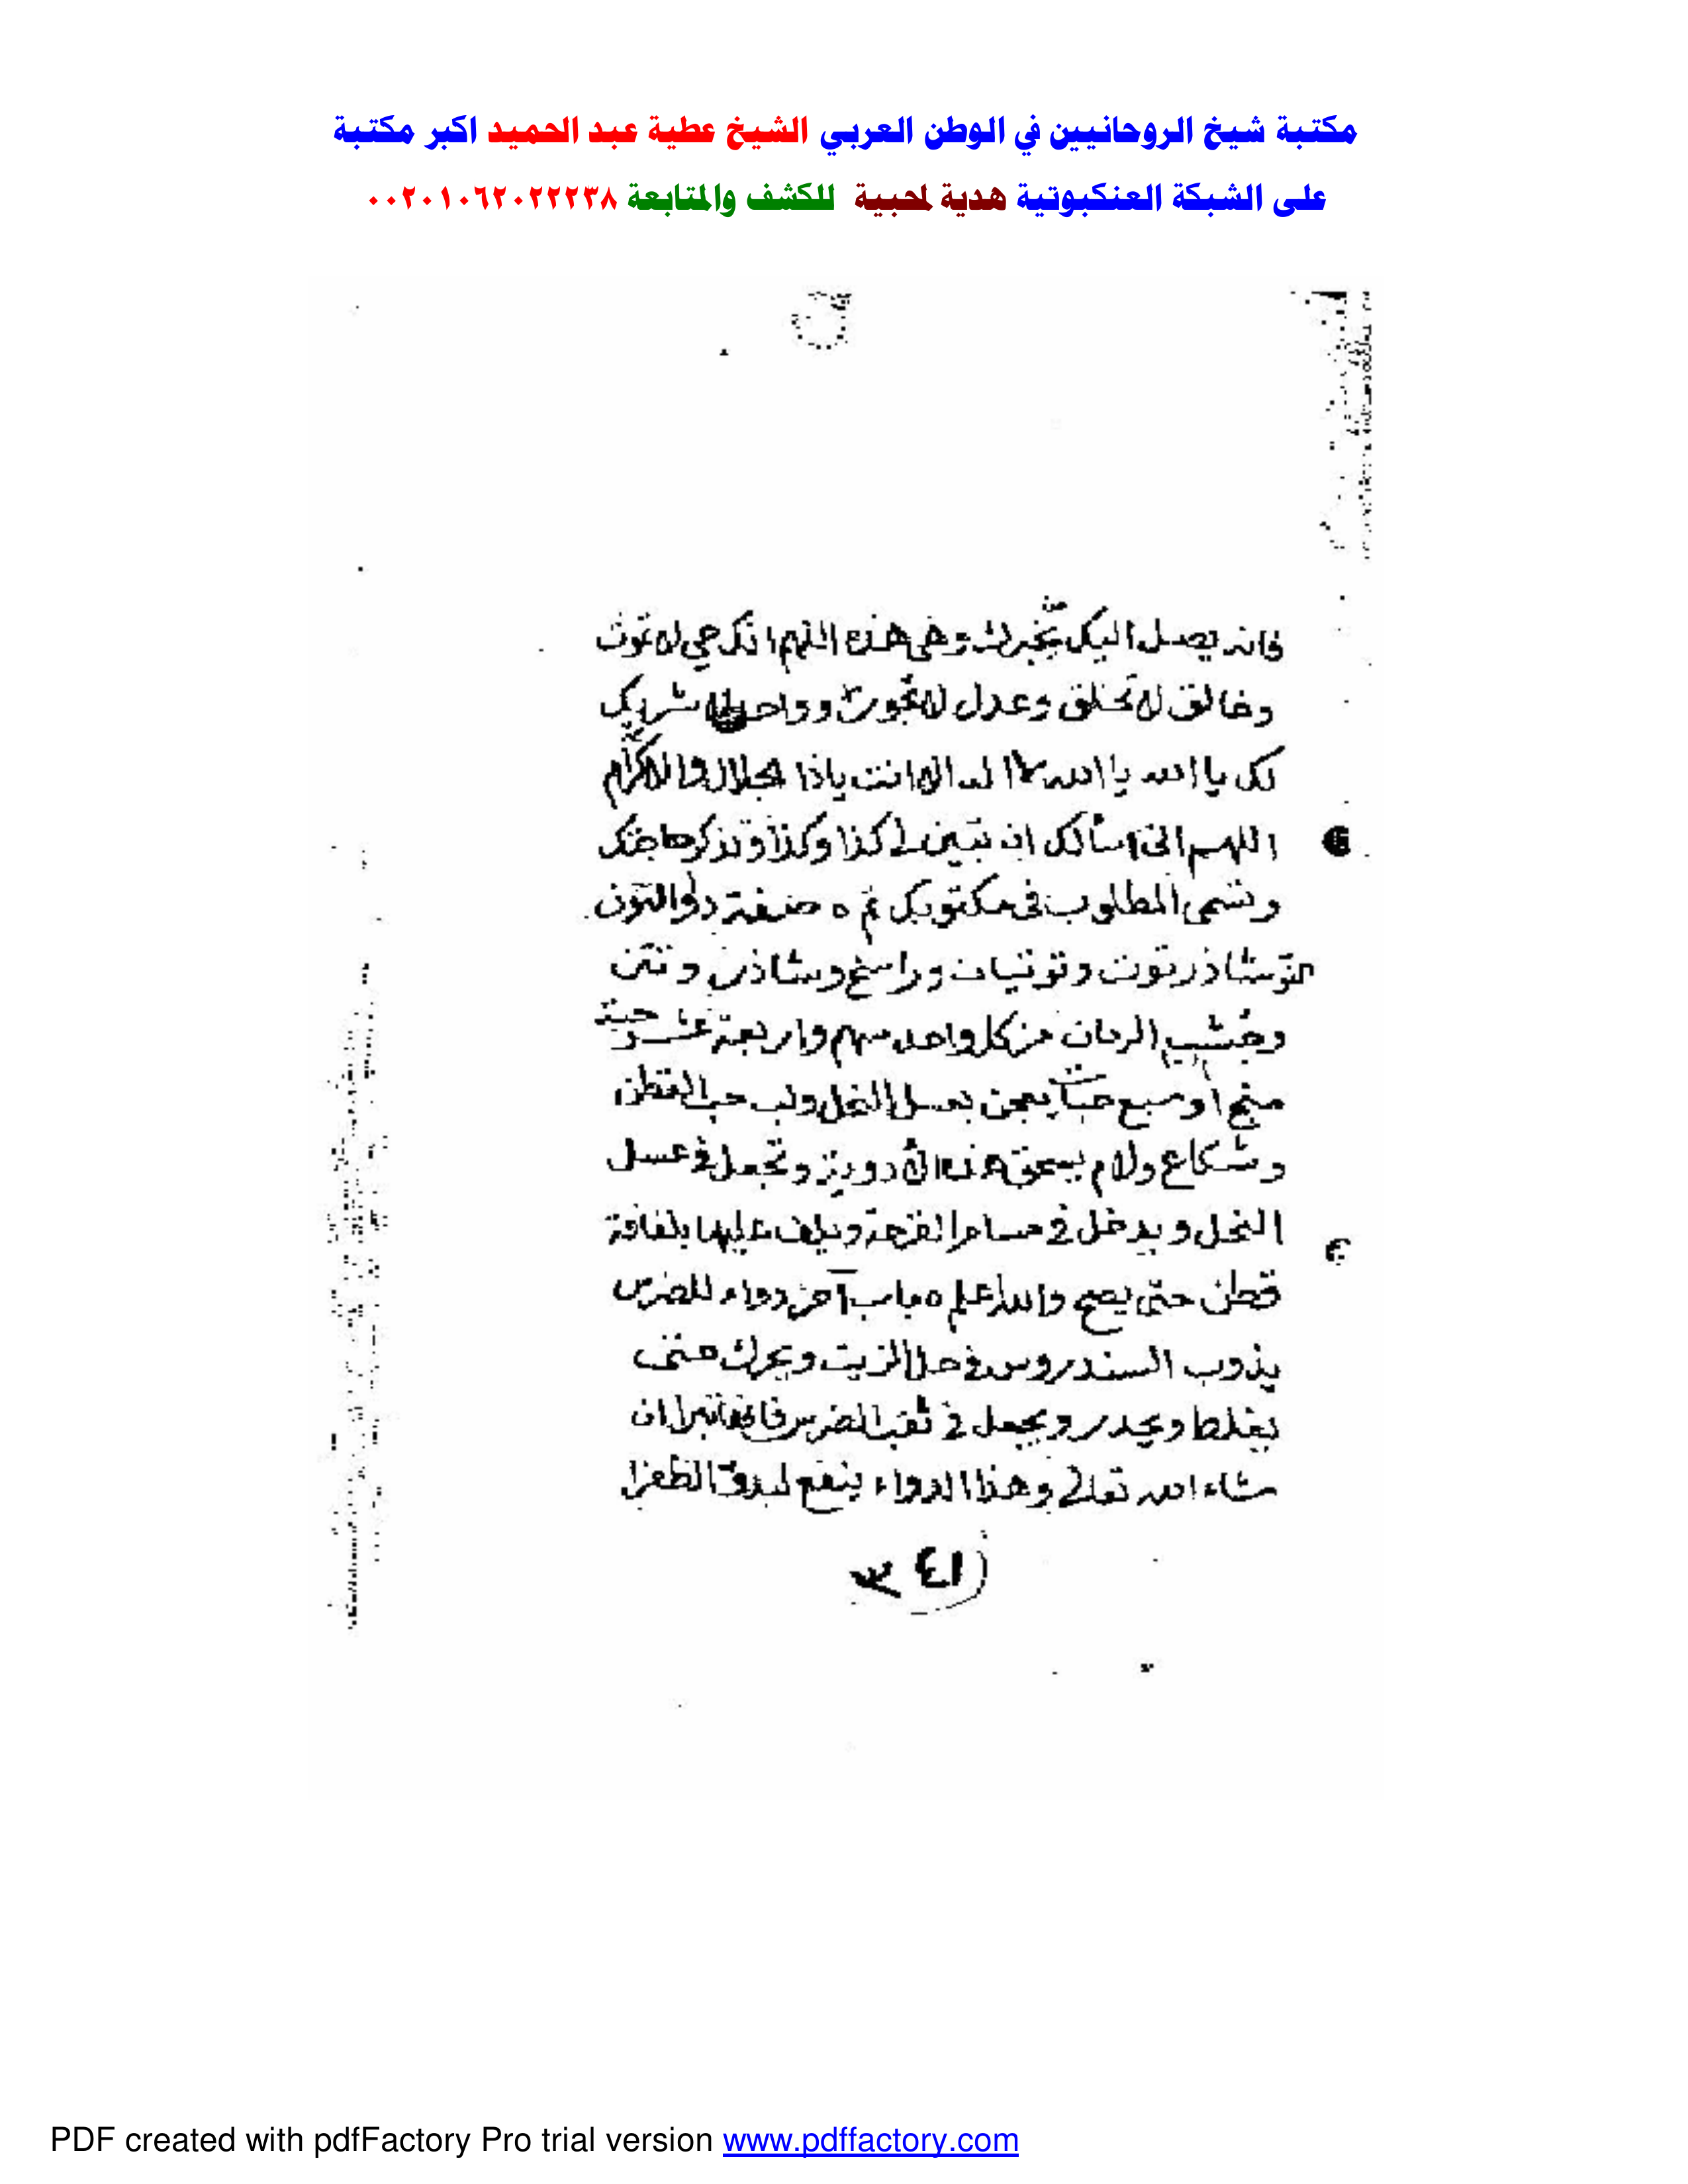 مكتبة شيخ الروحانيين في الوطن العربي الشيخ عطية عبد الحميد اكبر مكتبة
على الشبكة العنكبوتية هدية لمحبية للكشف والمتابعة ٠٠٢٠١٠٦٢٠٢٢٢٣٨
فانه يصل اليك من يخبرك وهي هذه اللهم انك حي لا تموت
وخالق لا تخلق وعدل لا تجور وواحد لا شريك
لك يا الله يا الله لا اله الا انت ياذا الجلال والاكرام
اللهم اني اسألك ان تبين لي كذا وكذا وتذكر حاجتك
وتسمى المطلوب في مكتوبك تم ه صفة
وتوتيات وراسخ
وقشب الرمان من كل واحد سهم واربعة عشر حبة
او سبع حبات يعجن بعسل النحل ولب حب القطن
يسحق هذه الادوية وتجعل في عسل
النحل ويدخل في مسام القرحة ويلف عليها بلفافة
قطن حتى يصح والله اعلم ه باب آخر دواء للضرس
يذوب السندروس في حل الزيت ويحرك حتى
يغلظ ويحدر ويجعل في ثقب الضرس فانها تبرا ان
شاء الله تعالى وهذا الدواء ينفع
٤١
PDF created with pdfFactory Pro trial version www.pdffactory.com